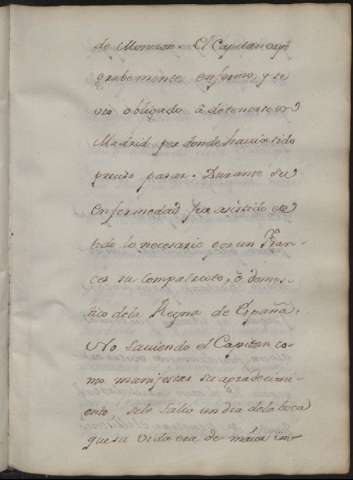 de Monzon. El Capitan cayò
grabemente enfermo, y se
vio obligado à detenerse en
Madrid por donde havia sido
preciso pasar. Durante su
enfermedad fue asistido en
todo lo necesario por un Fran-
ces su compatriota, ò domes-
tico de la Reyna de España,
No saviendo el Capitan co-
mo manifestar su agradecimi-
ento, sele salio un dia de la boca
que su vida era de maior im-